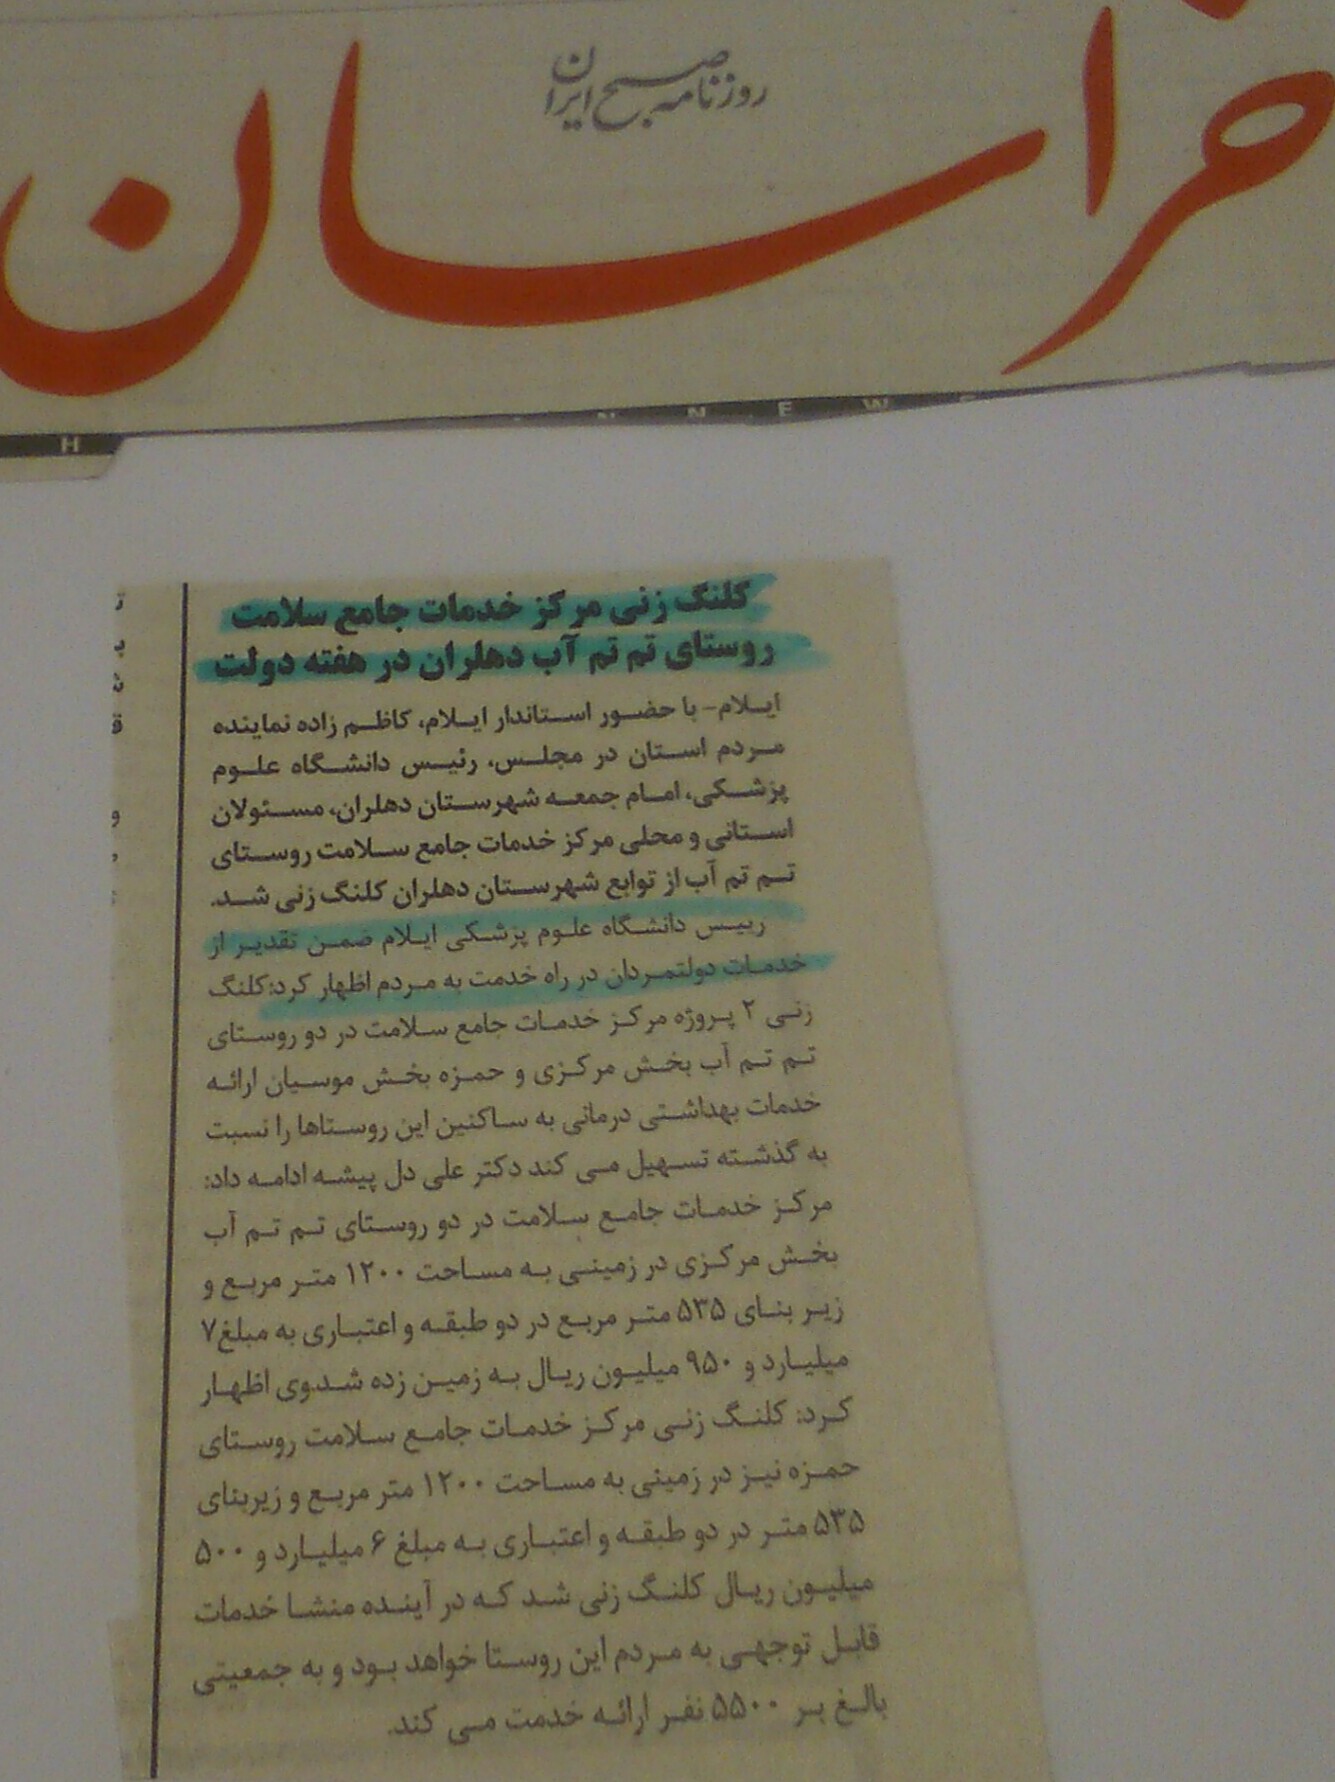 روزنامه صبح ایران
خراسان
کلنگ زنی مرکز خدمات جامع سلامت
روستای تم تم آب دهلران در هفته دولت
ایلام- با حضور استاندار ایلام، کاظم زاده نماینده
مردم استان در مجلس، رئیس دانشگاه علوم
پزشکی، امام جمعه شهرستان دهلران، مسئولان
استانی و محلی مرکز خدمات جامع سلامت روستای
تم تم آب از توابع شهرستان دهلران کلنگ زنی شد.
رییس دانشگاه علوم پزشکی ایلام ضمن تقدیر از
خدمات دولتمردان در راه خدمت به مردم اظهار کرد:کلنگ
زنی ۲ پروژه مرکز خدمات جامع سلامت در دو روستای
تم تم آب بخش مرکزی و حمزه بخش موسیان ارائه
خدمات بهداشتی درمانی به ساکنین این روستاها را نسبت
به گذشته تسهیل می کند دکتر علی دل پیشه ادامه داد:
مرکز خدمات جامع سلامت در دو روستای تم تم آب
بخش مرکزی در زمینی به مساحت ۱۲۰۰ متر مربع و
زیر بنای ۵۳۵ متر مربع در دو طبقه و اعتباری به مبلغ ۷
میلیارد و ۹۵۰ میلیون ریال به زمین زده شد.وی اظهار
کرد: کلنگ زنی مرکز خدمات جامع سلامت روستای
حمزه نیز در زمینی به مساحت ۱۲۰۰ متر مربع و زیربنای
۵۳۵ متر در دو طبقه و اعتباری به مبلغ ۶ میلیارد و ۵۰۰
میلیون ریال کلنگ زنی شد که در آینده منشا خدمات
قابل توجهی به مردم این روستا خواهد بود و به جمعیتی
بالغ بر ۵۵۰۰ نفر ارائه خدمت می کند.